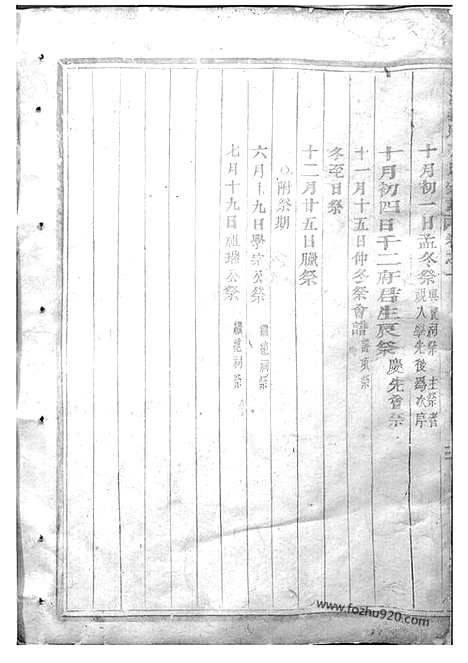 十月初一日孟冬祭 興賢祠祭 主祭者
視入學先後為次序
十月初四日千二府君生辰祭 慶先會祭
十一月十五日仲冬祭會譜 譜項祭
冬至日祭
十二月廿五日臘祭
○附祭期
六月十九日學宗公祭 繼總祠祭
七月十九日祖璁公祭 祠祭
三
www.fozhu920.com